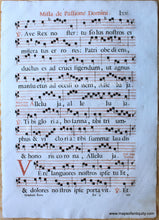 Missa de Passione Domini. Lxxi
Ave Rex noster: tu solus nostros es
miseratus errores: Patri obedi ens,
ductus es ad cruci figendum, ut agnus
mansuetus ad occisi o nem.
Allelu ja, al le lu
ja.
Ti bi glo ria, ho sanna: tibi
triumphus, & victori a: tibi summæ laudis
& honoris coro na, Allelu ja.
Vere languores nostros ipse tu lit,
& dolores nostros ipse porta vit. Et
www.mapsofantiquity.com